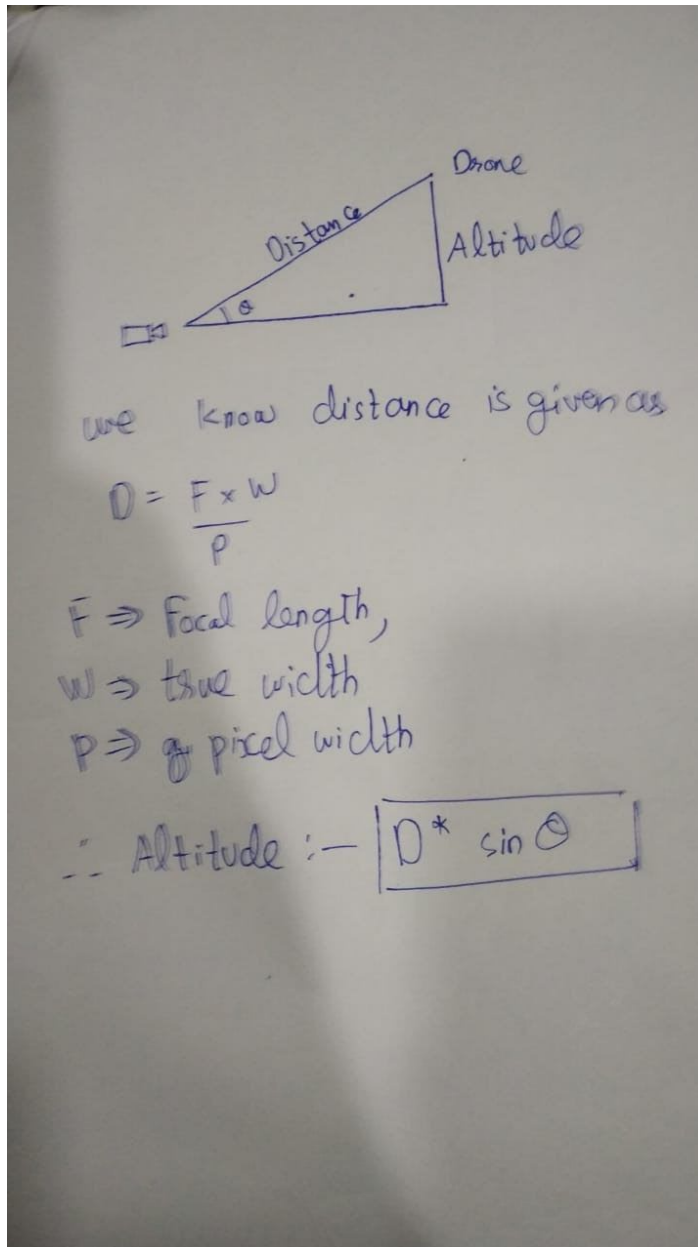 Drone
Distance
Altitude
θ
we know distance is given as
D = F × W
P
F ⇒ Focal length,
W ⇒ true width
P ⇒ pixel width
∴ Altitude :- D* sin θ